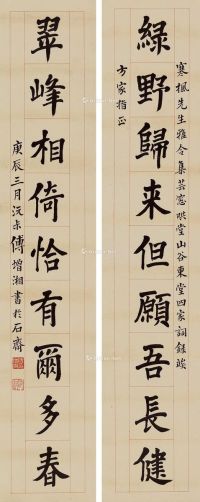 綠野歸来但願吾長健
寒楓先生雅令集芸窓㬇堂山谷東堂四家詞録竣
方家指正
翠峰相倚恰有爾多春
庚辰三月沅尗傅增湘書於石齋